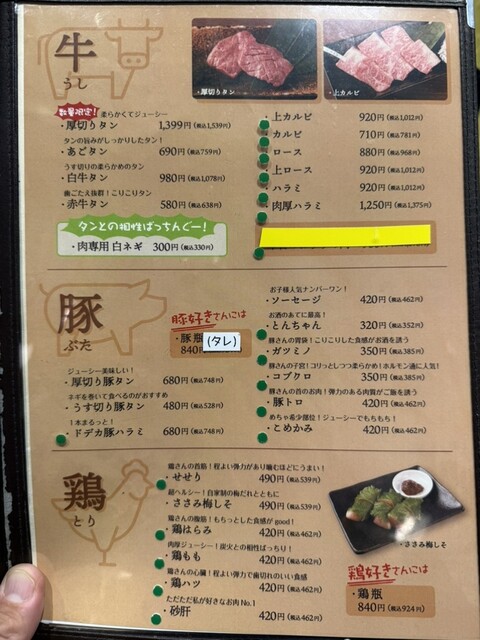 牛
うし
・厚切りタン
・上カルビ
数量限定!
柔らかくてジューシー
・厚切りタン 1,399円(税込1,539円)
タンの旨みがしっかりしたタン!
・あごタン 690円(税込759円)
うす切りの柔らかめのタン
・白牛タン 980円(税込1,078円)
歯ごたえ抜群!こりこりタン
・赤牛タン 580円(税込638円)
タンとの相性ばっちんぐー!
・肉専用 白ネギ 300円(税込330円)
・上カルビ 920円(税込1,012円)
カルビ 710円(税込781円)
・ロース 880円(税込968円)
・上ロース 920円(税込1,012円)
・ハラミ 920円(税込1,012円)
・肉厚ハラミ 1,250円(税込1,375円)
豚
ぶた
豚好きさんには
・豚瓶 (タレ)
840円
ジューシー美味しい!
・厚切り豚タン 680円(税込748円)
ネギを巻いて食べるのがおすすめ
・うす切り豚タン 480円(税込528円)
1本まるっと!
・ドデカ豚ハラミ 680円(税込748円)
お子様人気ナンバーワン!
・ソーセージ 420円(税込462円)
お酒のあてに最高!
・とんちゃん 320円(税込352円)
豚さんの胃袋!こりこりした食感がお酒を誘う
・ガツミノ 350円(税込385円)
豚さんの子宮!コリっとしつつ柔らかめ!ホルモン通に人気!
・コブクロ 350円(税込385円)
豚さんの首のお肉!弾力のある肉質がご飯を誘う
・豚トロ 420円(税込462円)
めちゃ希少部位!ジューシーでもちもち!
・こめかみ 420円(税込462円)
鶏
とり
鶏さんの首筋!程よい弾力があり噛むほどにうまい!
・せせり 490円(税込539円)
超ヘルシー!自家製の梅だれとともに
・ささみ梅しそ 490円(税込539円)
鶏さんの腹筋!もちっとした食感が good!
・鶏はらみ 420円(税込462円)
肉厚ジューシー!炭火との相性ばっちり!
・鶏もも 420円(税込462円)
鶏さんの心臓!程よい弾力で歯切れのいい食感
・鶏ハツ 420円(税込462円)
ただただ私が好きなお肉 No.1
・砂肝 420円(税込462円)
・ささみ梅しそ
鶏好きさんには
・鶏瓶
840円(税込924円)